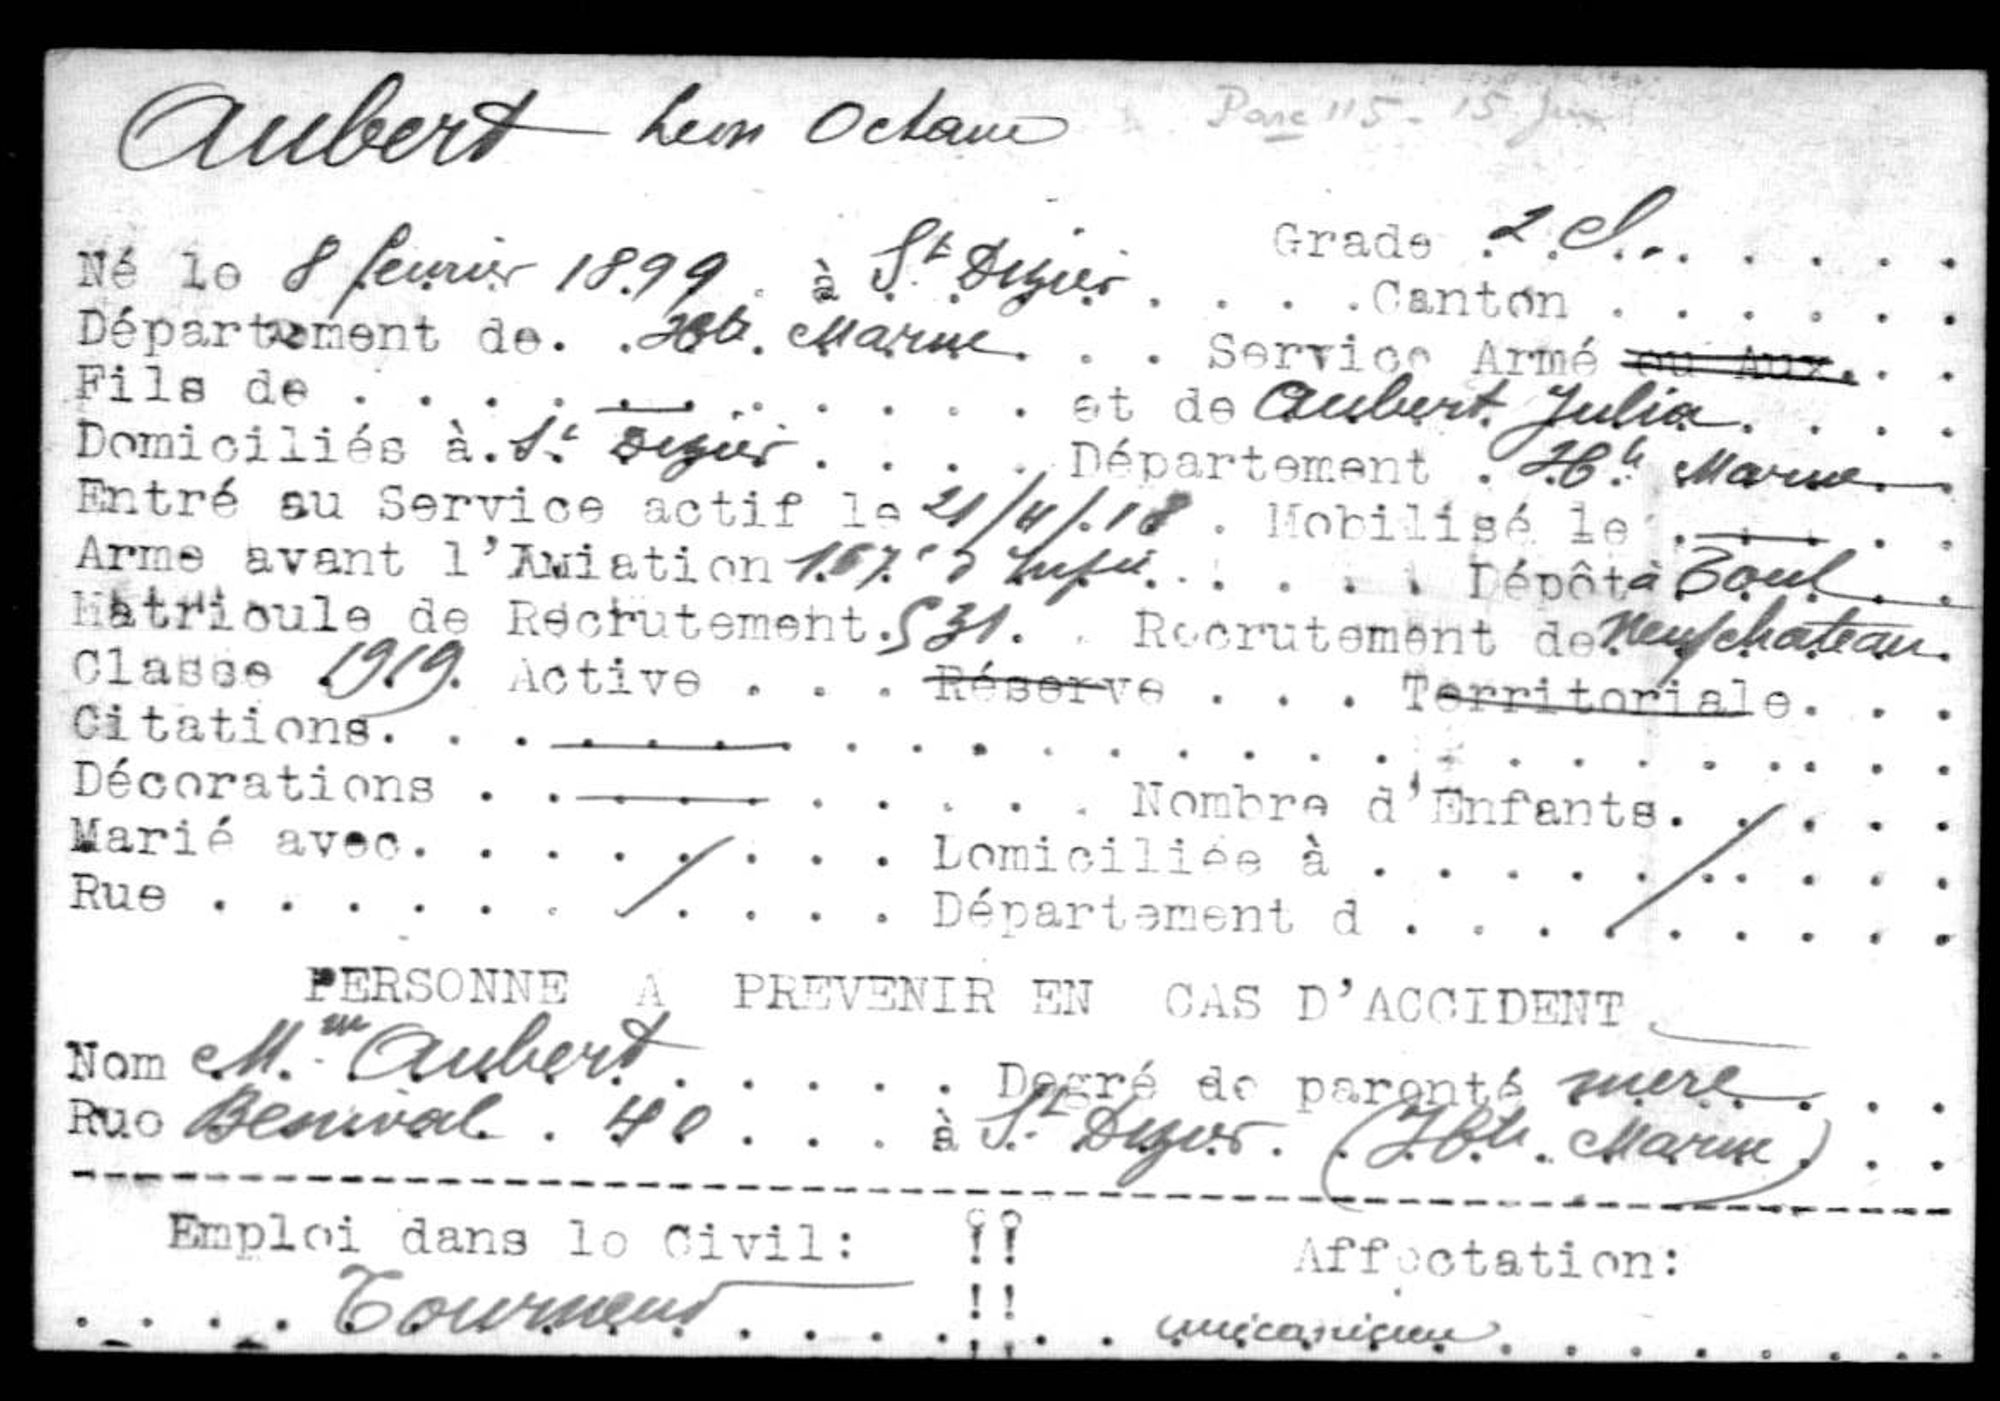 Aubert Leon Octave Parc 115 - 15 Juin
Grade 2. Cl.
Né le 8 fevrier 1899 à St Dizier Canton
Département de Hte Marne Service Armé ou Aux.
Fils de — et de Aubert Julia
Domiciliés à St Dizier Département Hte Marne
Entré au Service actif le 21/4/18 Mobilisé le —
Arme avant l'Aviation 167e d'Infie Dépôt à Toul
Matricule de Recrutement 531. Recrutement de Neufchateau
Classe 1919 Active Réserve Territoriale
Citations —
Décorations — Nombre d'Enfants /
Marié avec / Domiciliée à /
Rue Département d
PERSONNE A PREVENIR EN CAS D'ACCIDENT
Nom Mme Aubert Degré de parenté mere
Rue 40 à St Dizier (Hte Marne)
Emploi dans le Civil: !! Affectation:
Tourneur !! mécanicien